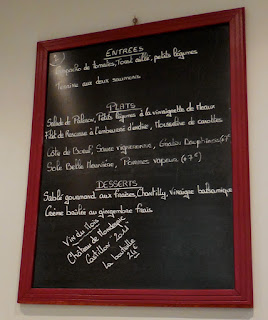 ENTREES
Gaspacho de tomates, Toast aillé, petits légumes
Terrine aux deux saumons
PLATS
Salade de Poisson, Petits légumes à la vinaigrette de Meaux
Filet de Rascasse à l'embeurrée d'endive, Mousseline de carottes
Côte de Boeuf, Sauce vigneronne, Gratin Dauphinois
Sole Belle Meunière, Pommes vapeur (+7€)
DESSERTS
Sablé gourmand aux fraises, Chantilly, vinaigre balsamique
Crème brûlée au gingembre frais
Vin du Mois
Château de
Castillon
la bouteille